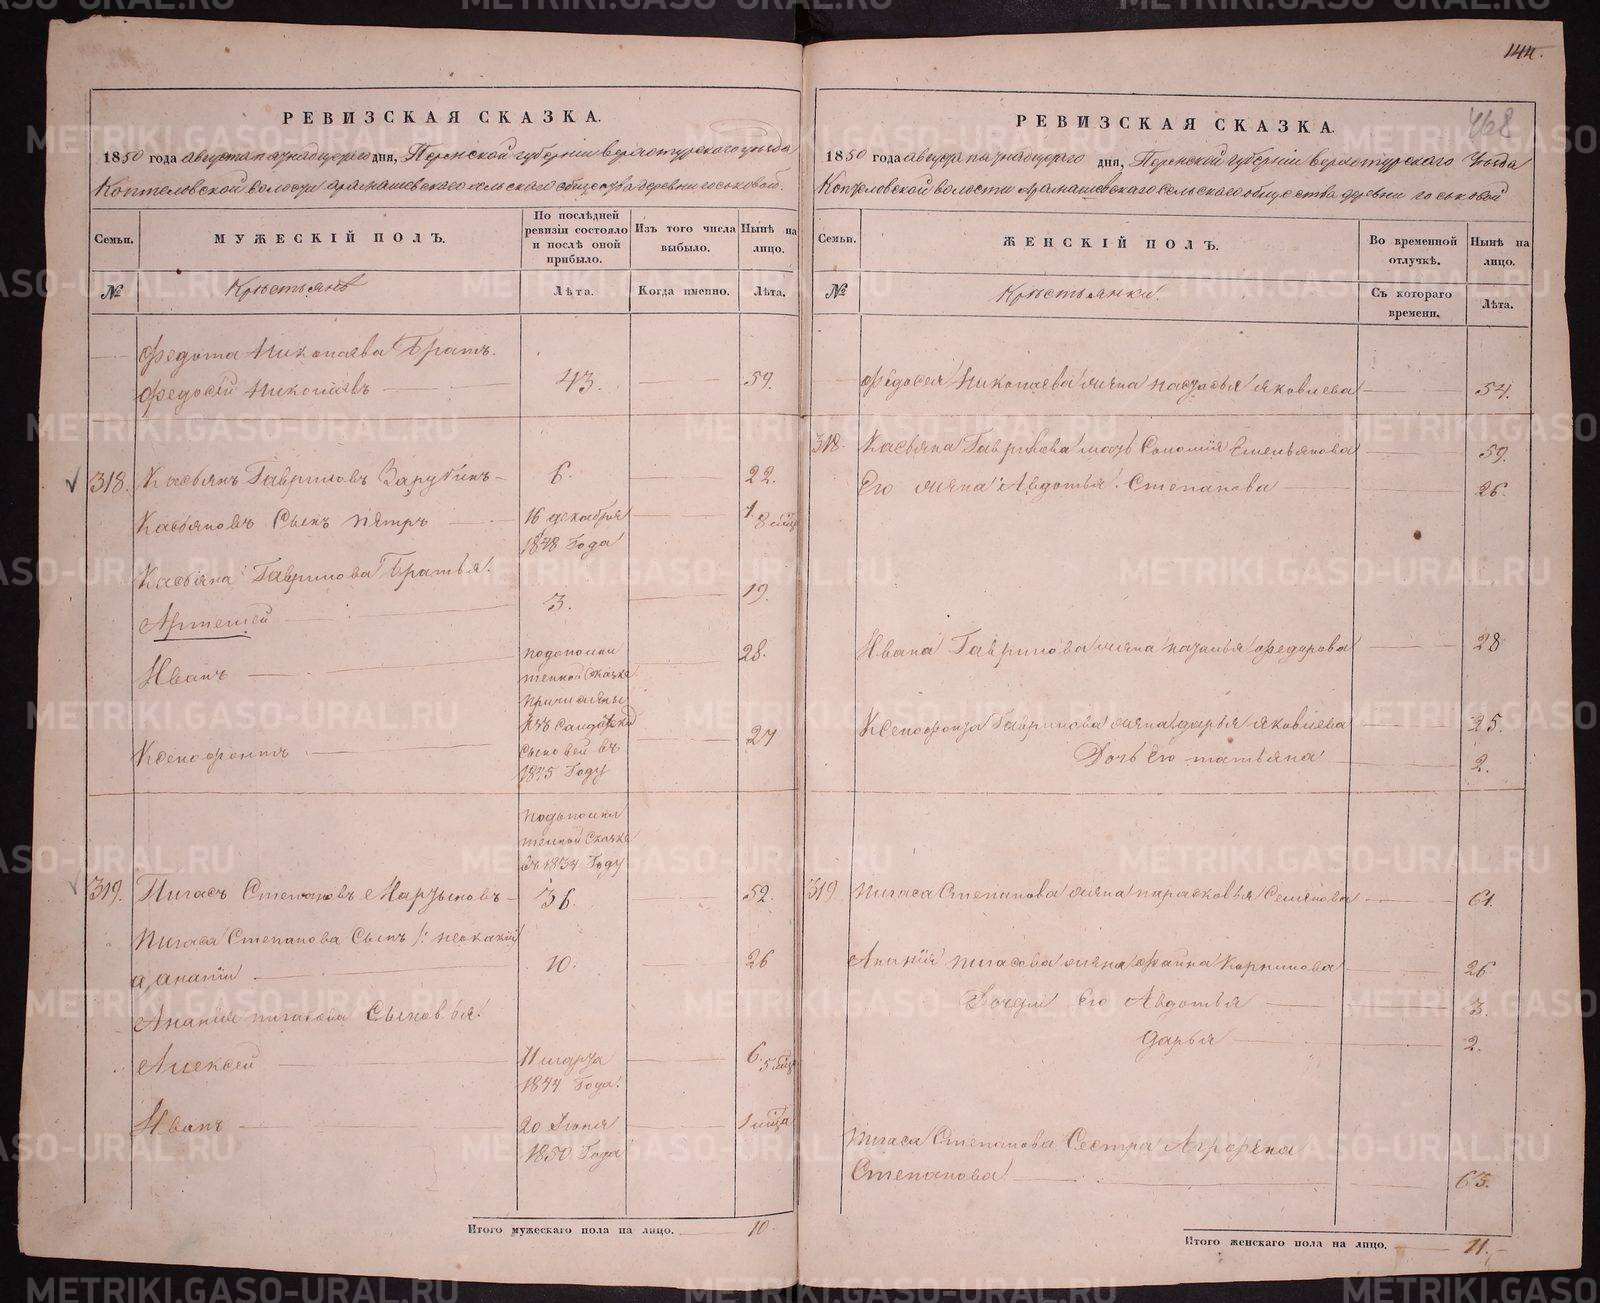 144.
468
РЕВИЗСКАЯ СКАЗКА.
1850 года августа пятнадцатого дня, Пермской губернии верхотурского уѣзда
Коптеловской волости арамашевскаго сельскаго общества деревни госьковой.
Семьи.
МУЖЕСКІЙ ПОЛЪ.
По послѣдней ревизіи состояло и послѣ оной прибыло.
Изъ того числа выбыло.
Нынѣ на лицо.
№
Крестьянѣ
Лѣта.
Когда именно.
Лѣта.
Федота Николаева Братъ.
Федосѣй Николаевъ 43. 59.
318. Касьянъ Гавриловъ Зарубинъ 6. 22.
Касьяновъ Сынъ пѣтръ 16 декабря 1. 8 мѣц
1848 Года
Касьяна Гаврилова Братья.
Артемей 3. 19.
Иванъ 28.
тельной сказкѣ
причислены
Ксенофонтъ 27
сыновей въ
1845 Году
тельной Сказкѣ
въ 1834 Году
319. Пигасъ Степановъ Мартьяновъ 36 52.
Пигаса Степанова Сынъ
ананiй 10. 26
Ананiя пигасова Сыновья.
Алексей 11 марта 6. 5 мѣц
1844 Года.
Иванъ 20 Iюня 1 мѣца
1850 Года
Итого мужескаго пола на лицо. 10
РЕВИЗСКАЯ СКАЗКА.
1850 года августа пятнадцатого дня, Пермской губерніи верхотурского Уѣзда
Коптеловской волости Арамашевскаго сельскаго общества деревни госьковой
Семьи.
ЖЕНСКІЙ ПОЛЪ.
Во временной отлучкѣ.
Нынѣ на лицо.
№
Крѣстьянки.
Съ котораго времени.
Лѣта.
Федосея Николаева жена настасья яковлева 54.
318. Касьяна Гаврилова мать Соломiя Емельянова 59.
Его жена Авдотья Степанова 26.
Ивана Гаврилова жена наталья федорова 28
Ксенофонта Гаврилова жена дарья яковлева 25.
Дочь Его татьяна 2.
319 пигаса Степанова жена парасковья Семенова 61.
Ананiя пигасова жена файна Корнилова 26
Дочери Его Авдотья 3.
дарья 2.
Пигаса Степанова Сестра Агрофена
Степанова 63.
Итого женскаго пола на лицо. 11.
METRIKI.GASO-URAL.RU